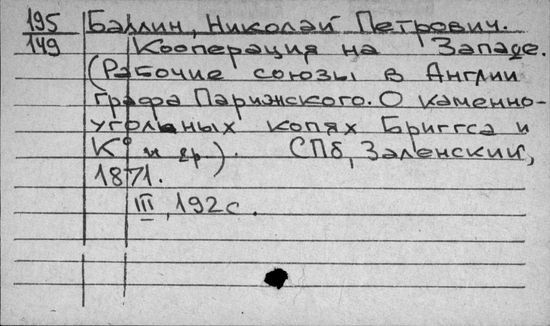 195 Баллин, Николай Петрович.
149 Кооперация на Западе.
(Рабочие союзы в Англии
графа Парижского. О каменно-
угольных копях Бриггса и
К° и др). СПб, Заленский,
1871.
III, 192 с.